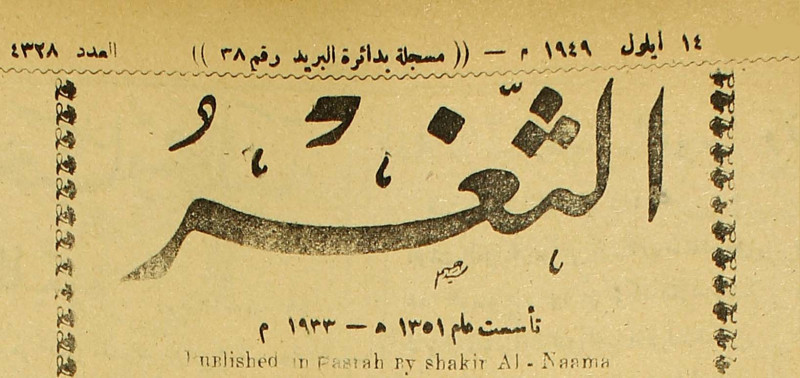 ١٤ ايلول ١٩٤٩ م — (( مسجلة بدائرة البريد رقم ٣٨ )) العدد ٤٣٢٨
الثَّغْرُ
رحيم
تأسست عام ١٣٥١ ه — ١٩٣٣ م
Published in Basrah By shakir Al - Naama